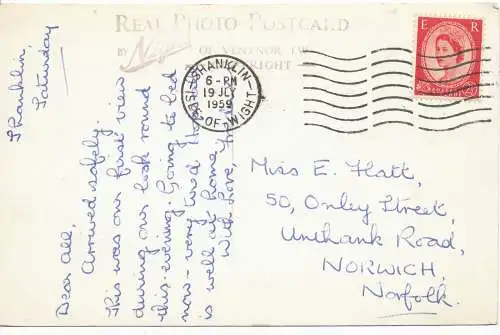 REAL PHOTO POSTCARD
BY Nigh OF VENTNOR, I.W.
COPYRIGHT
SHANKLIN
6 - PM
19 JLY
1959
ISLE OF WIGHT
E R
Shanklin
Saturday
Dear all,
Arrived safely.
This was our first view
during our look round
this evening. Going to bed
now - very tired
is well at home
With love
Miss E. Flatt,
50, Onley Street,
Unthank Road,
NORWICH,
Norfolk.